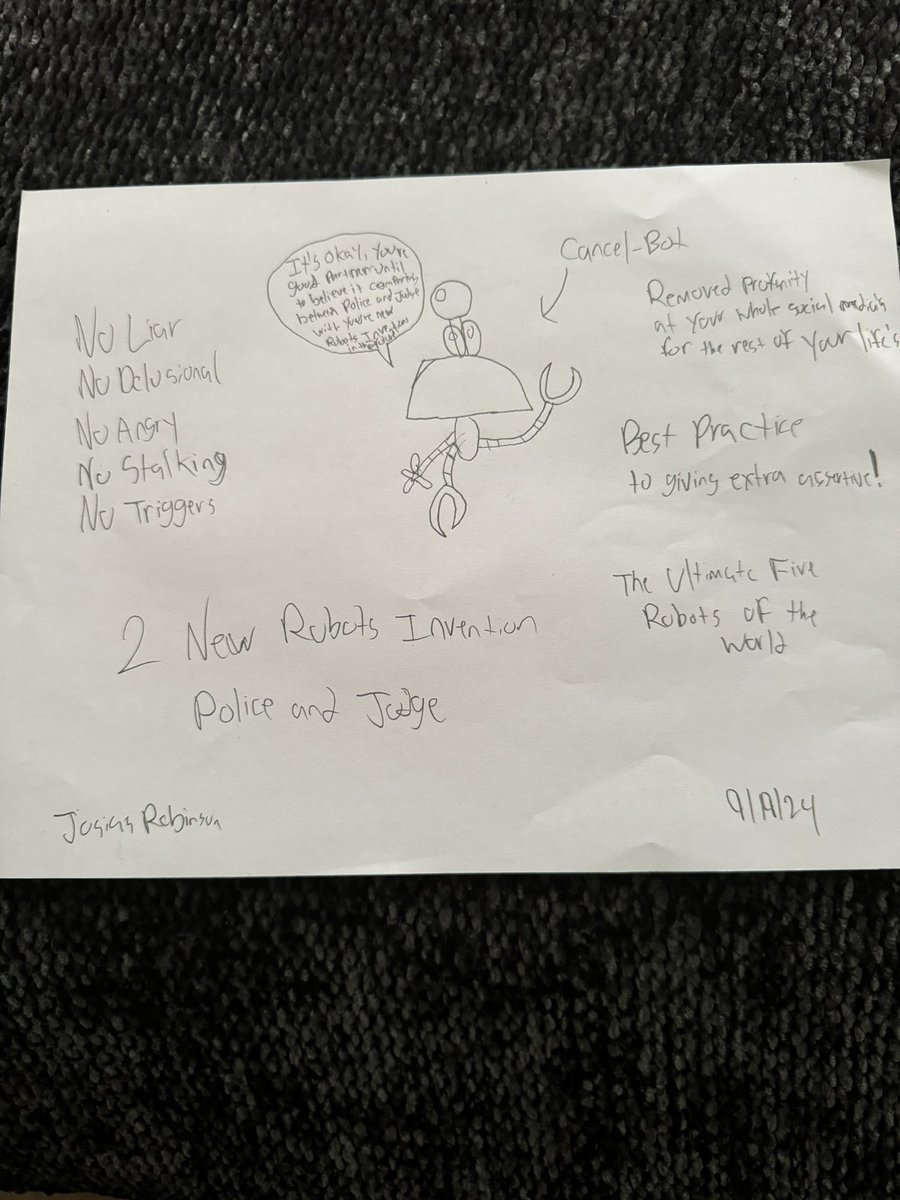 Cancel-Bot
It's okay, you're
good Partner until
to believe it comparing
between Police and Judge
with you're new
Robots Invention
in the
Removed Profanity
at your whole social media's
for the rest of your life's
No Liar
No Delusional
No Angry
No Stalking
No Triggers
Best Practice
to giving extra assertive!
The Ultimate Five
Robots of the
World
2 New Robots Invention
Police and Judge
Josias Robinson